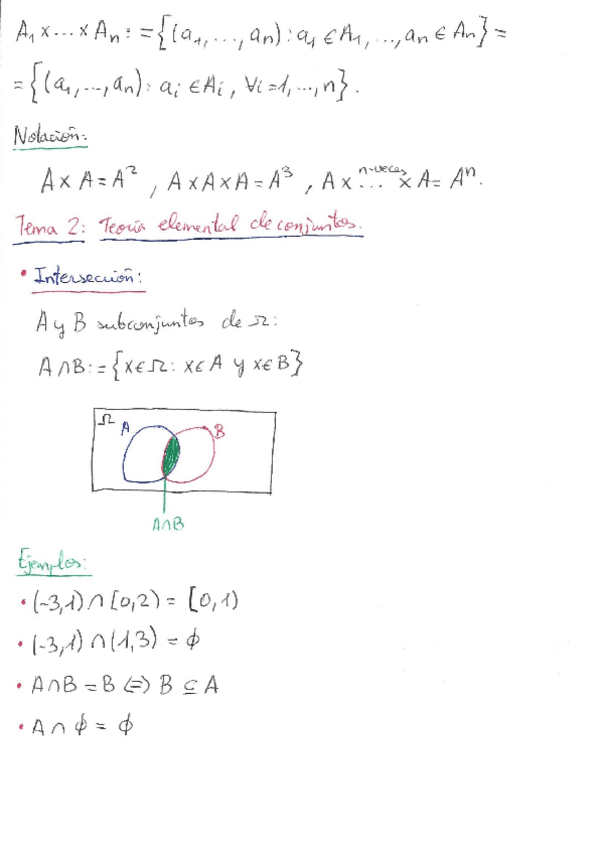 A₁ x ... x Aₙ : = {(a₁, ..., aₙ) : a₁ ∈ A₁, ..., aₙ ∈ Aₙ} =
= {(a₁, ..., aₙ) : aᵢ ∈ Aᵢ, ∀i = 1, ..., n}.
Notación:
A x A = A², A x A x A = A³, A x n-veces... x A = Aⁿ.
Tema 2: Teoría elemental de conjuntos.
• Intersección:
A y B subconjuntos de Ω:
A ∩ B : = {x ∈ Ω : x ∈ A y x ∈ B}
Ω
A
B
A∩B
Ejemplos:
• (-3,1) ∩ [0,2) = [0,1)
• (-3,1) ∩ (1,3) = ϕ
• A∩B = B ⇔ B ⊆ A
• A ∩ ϕ = ϕ